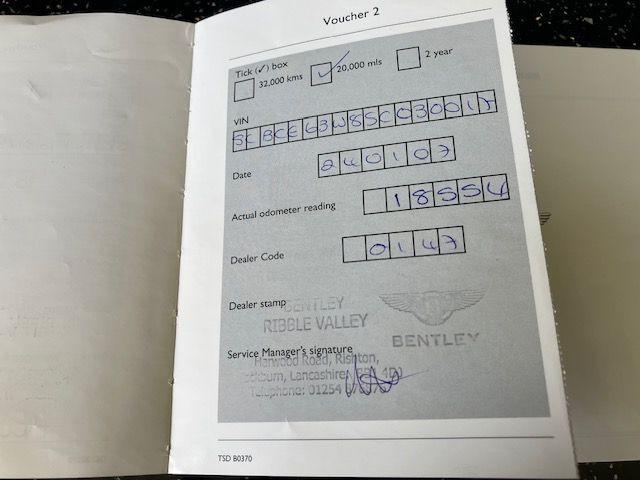 Voucher 2
Tick (✓) box
32,000 kms ✓ 20,000 mls 2 year
VIN
SCBCE63W85C030017
Date 240107
Actual odometer reading 18554
Dealer Code 0147
Dealer stamp
BENTLEY
RIBBLE VALLEY
BENTLEY
Service Manager's signature
Harwood Road, Rishton,
Lancashire,
Telephone: 01254
TSD B0370